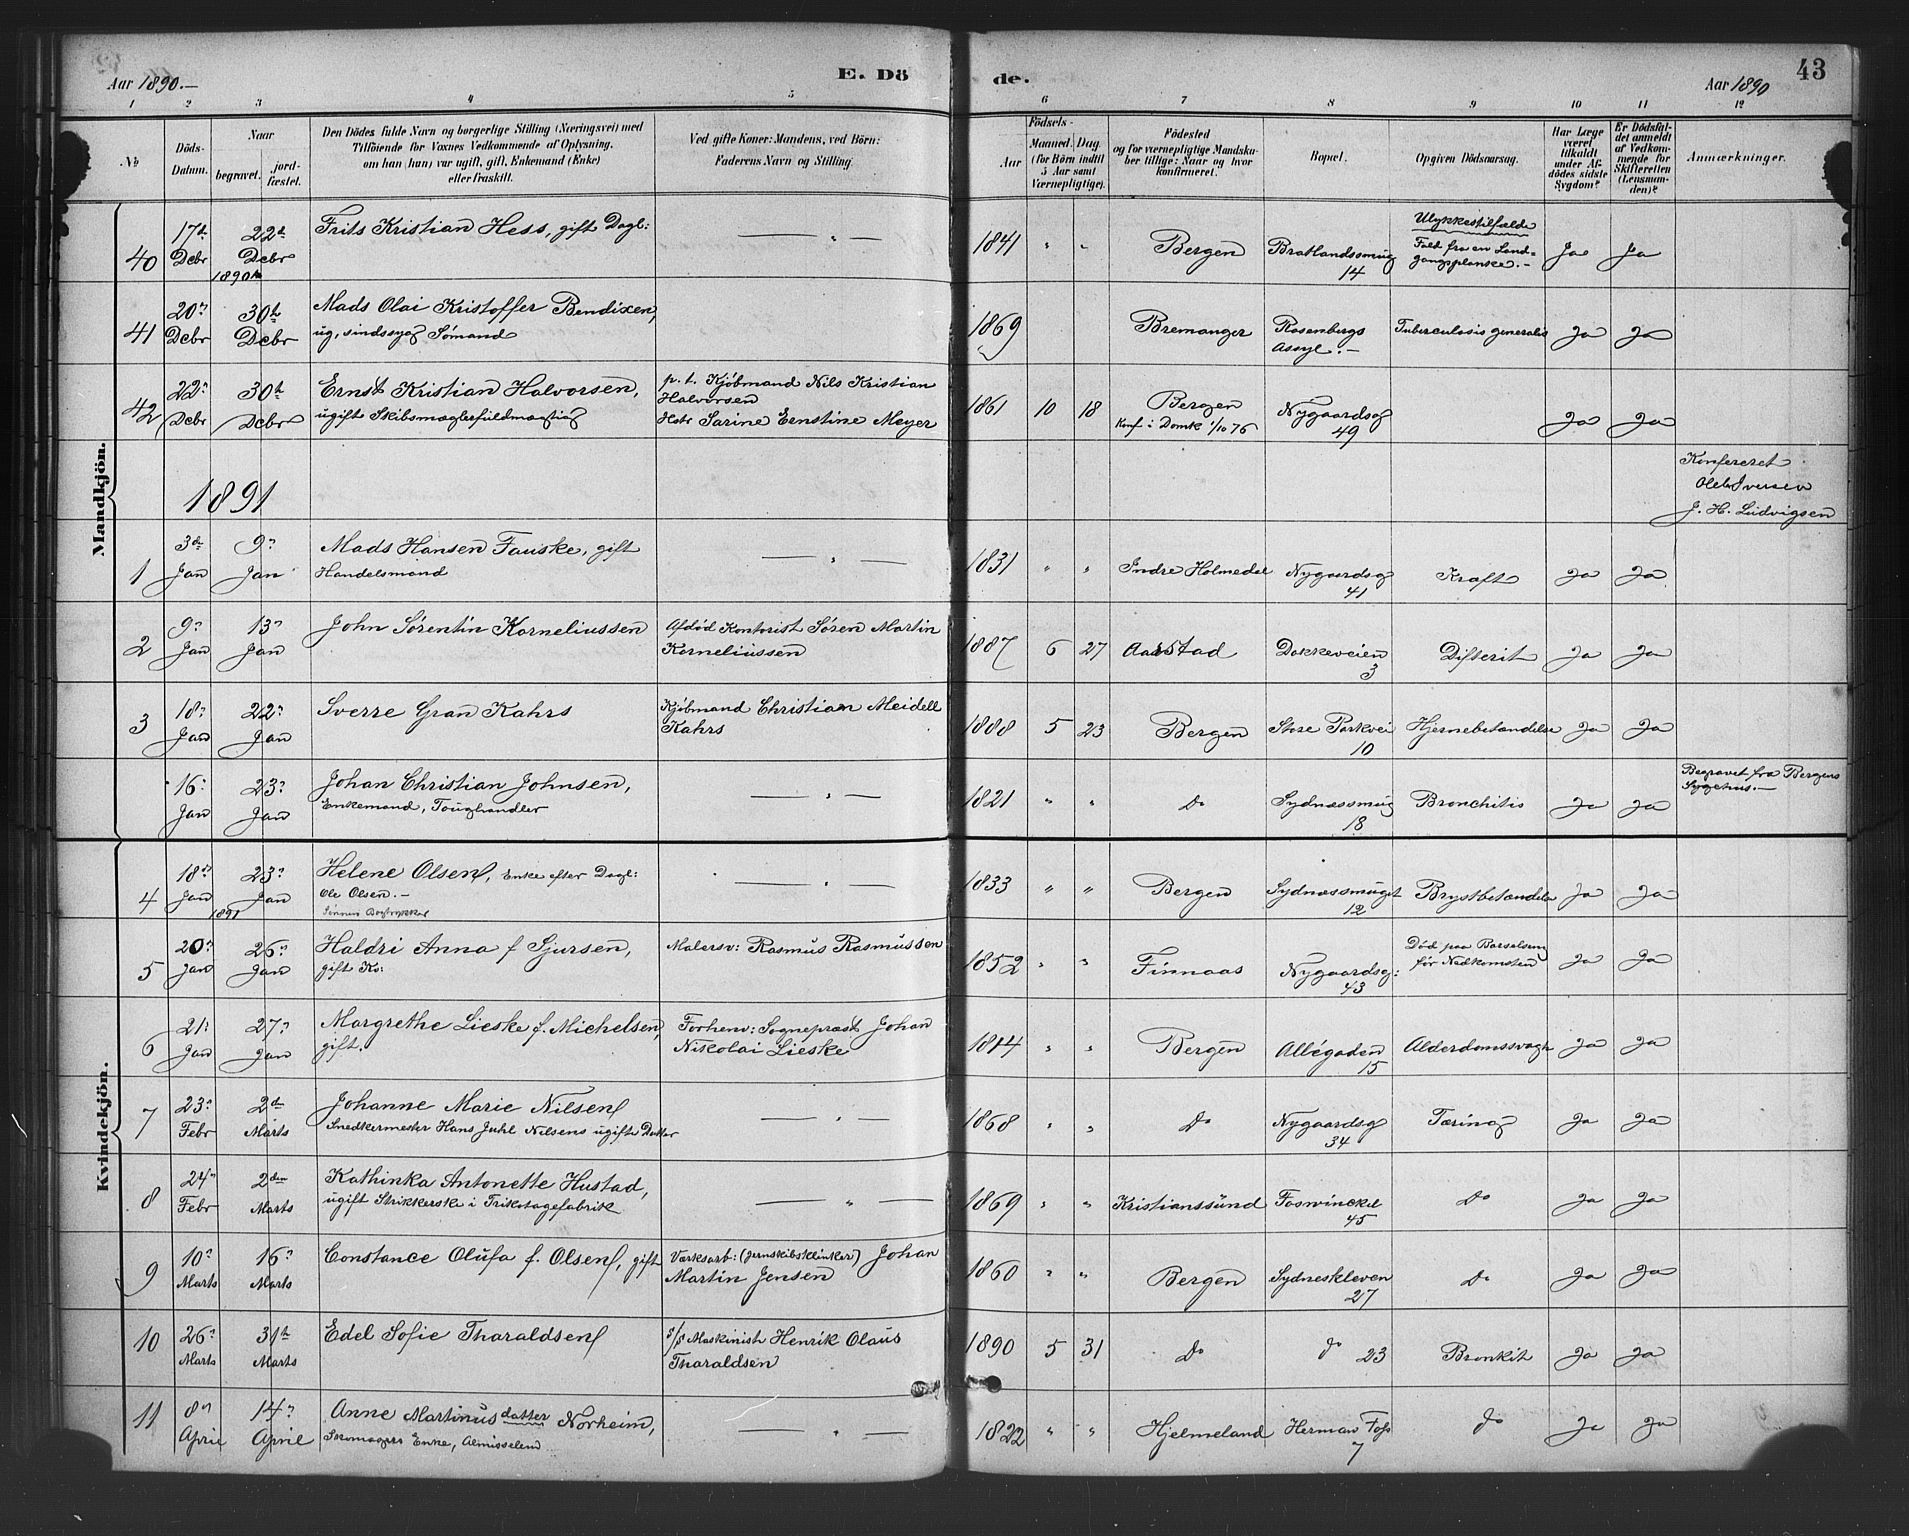 Aar 1890.—
E. Dö
de.
Aar 1890
43
1 2 3 4 5 6 7 8 9 10 11 12
No
Döds-Datum.
Naar
begravet.
jordfæstet.
Den Dödes fulde Navn og borgerlige Stilling (Næringsvei) med
Tilföiende for Voxnes Vedkommende af Oplysning,
om han (hun) var ugift, gift, Enkemand (Enke)
eller fraskilt.
Ved gifte Koner: Mandens, ved Börn:
Faderens Navn og Stilling.
Födsels-
Aar
Maaned. Dag.
(for Börn indtil
5 Aar samt
Værnepligtige).
Födested
og for værnepligtige Mandskaber tillige: Naar og hvor
konfirmeret.
Bopæl.
Opgiven Dödsaarsag.
Har Læge
været
tilkaldt
under Afdödes sidste
Sygdom?
Er Dödsfaldet anmeldt
af Vedkommende for
Skifteretten
(Lensmanden)?
Anmærkninger.
Mandkjön.
40 17de Debr 22de Debr Frits Kristian Hess, gift Dagl: — " — 1841 " " Bergen Bratlandssmug 14 Ulykkestilfælde Fald fra en Landgangsplanke.— Ja Ja
1890
41 20n Debr 30te Debr Mads Olai Kristoffer Bendixen,
ug, sindssyg Sømand 1869 Bremanger Rosenbergs Assyl.— Tuberculosis generalis Ja Ja
42 22n Debr 30te Debr Ernst Kristian Halvorsen,
ugift Skibsmæglefuldmægtig p. t. Kjøbmand Nils Kristian
Halvorsen
Hstr Sarine Ernstine Meyer 1861 10 18 Bergen
Konf i Domk 1/10 76 Nygaardsg 49 Ja Ja
1891
Konfereret
Ole Iversen
J. H. Ludvigsen
1 3de Jan 9n Jan Mads Hansen Fauske, gift
Handelsmand — " — 1831 " " Indre Holmedal Nygaardsg 41 Kræft Ja Ja
2 9n Jan 13n Jan John Sørentin Korneliussen Afdød Kontorist Søren Martin
Korneliussen 1887 6 27 Aarstad Dokkeveien 3 Difterit Ja Ja
3 18n Jan 22n Jan Sverre Gran Kahrs Kjøbmand Christian Meidell
Kahrs 1888 5 23 Bergen Store Parkvei 10 Hjernebetændelse Ja Ja
16n Jan 23n Jan Johan Christian Johnsen,
Enkemand, Toughandler — " — 1821 " " Do Sydnæssmug 18 Bronchitis Ja Ja Begravet fra Bergens
Sygehus.—
Kvindekjön.
4 18n Jan 23n Jan Helene Olsen, Enke efter Dagl:
Ole Olsen.—
Sønnen Bogtrykker — " — 1833 " " Bergen Sydnæssmuget 12 Brystbetændelse Ja Ja
1891
5 20n Jan 26n Jan Haldri Anna f Sjursen,
gift Ko: Malersv: Rasmus Rasmussen 1852 " " Finnaas Nygaardsg: 43 Død paa Barselseng
før Nedkomsten Ja Ja
6 21n Jan 27n Jan Margrethe Lieske f. Michelsen,
gift. Forhenv: Sognepræst Johan
Nikolai Lieske 1814 " " Bergen Allégaden 15 Alderdomssvagh Ja Ja
7 23n Febr 2den Marts Johanne Marie Nilsen
Snedkermester Hans Juhl Nilsens ugifte Datter — " — 1868 " " Do Nygaardsg 34 Tæring Ja Ja
8 24n Febr 2den Marts Kathinka Antonette Hustad,
ugift Strikkerske i Trikotagefabrik — " — 1869 " " Kristianssund Foswinckel 45 Do Ja Ja
9 10n Marts 16n Marts Constance Olufa f. Olsen, gift Værksarb: (Jernskibsklinker) Johan
Martin Jensen 1860 " " Bergen Sydneskleven 27 Do Ja Ja
10 26n Marts 31te Marts Edel Sofie Tharaldsen s/s Maskinist Henrik Olaus
Tharaldsen 1890 5 31 Do do 23 Bronkit Ja Ja
11 8n April 14n April Anne Martinusdatter Norheim,
Skomagers Enke, Almisselem — " — 1822 " " Hjelmeland Herman Foss 7 do Ja Ja